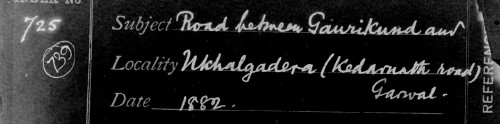 INDEX No
725
739
Subject Road between Gaurikund and
Locality Ukhalgadera (Kedarnath road)
Garwal.
Date 1882.
REFEREN